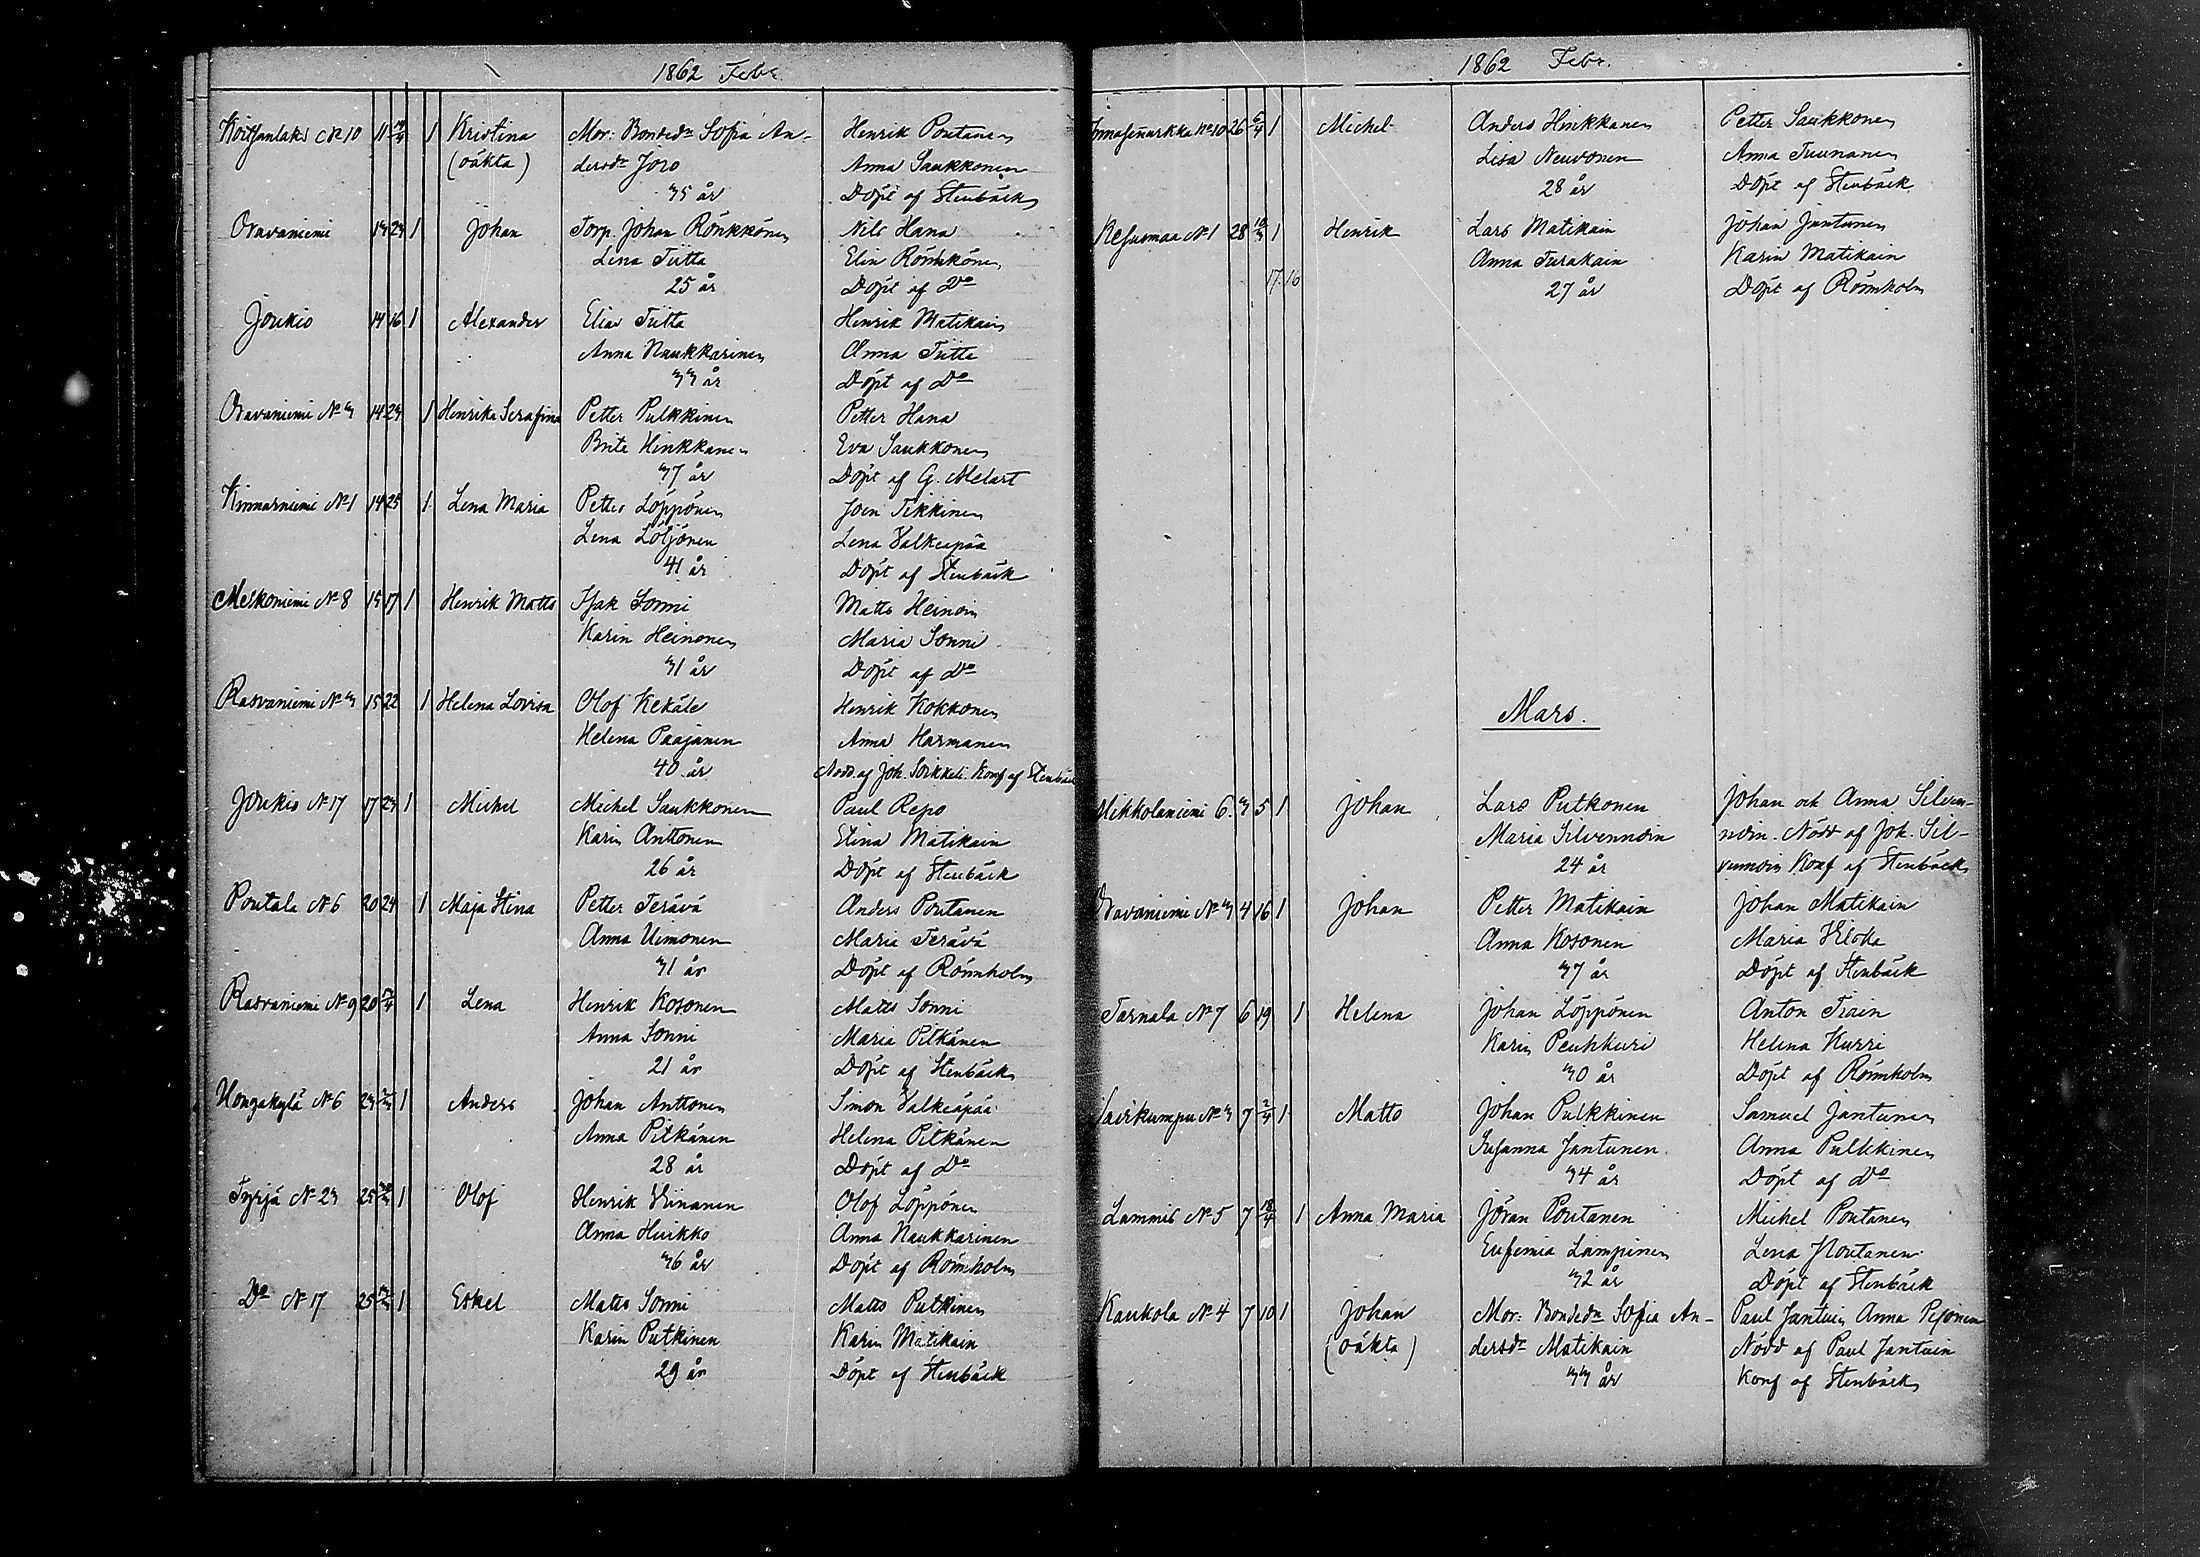 1862 Febr.
Koitsanlaks No 10 11 1 Kristina Mor: Bonded:r Sofia An- Henrik Pontanen
(oäkta) dersdr Joro Anna Saukkonen
35 år Döpt af Stenbäck
Oravaniemi 13 23 1 Johan Torp. Johan Rönkkönen Nils Hana
Lena Tiitta Elin Rönkkönen
25 år Döpt af Do
Joukio 14 16 1 Alexander Elias Tiitta Henrik Matikain
Anna Naukkarinen Anna Tiitta
33 år Döpt af Do
Oravaniemi No 3 14 23 1 Henrika Serafina Petter Pulkkinen Petter Hana
Brita Hinkkanen Eva Saukkonen
37 år Döpt af G. Melart
Kinnarniemi No 1 14 25 1 Lena Maria Petter Löppönen Joen Tikkinen
Lena Löljönen Lena Valkeapää
41 år Döpt af Stenbäck
Meskoniemi No 8 15 17 1 Henrik Matts Isak Sonni Matts Heinoin
Karin Heinonen Maria Sonni
31 år Döpt af Do
Rasvaniemi No 3 15 22 1 Helena Lovisa Olof Kekäle Henrik Kokkonen
Helena Paajanen Anna Harmanen
40 år Nödd af Joh. Soikkeli. Konf af Stenbäck
Joukio No 17 17 23 1 Michel Michel Saukkonen Paul Repo
Karin Anttonen Elina Matikain
26 år Döpt af Stenbäck
Poutala No 6 20 24 1 Maja Stina Petter Terävä Anders Pontanen
Anna Uimonen Maria Terävä
31 år Döpt af Rönnholm
Rasvaniemi No 9 20 1 Lena Henrik Kosonen Matts Sonni
Anna Sonni Maria Pitkänen
21 år Döpt af Stenbäck
Honzakylä No 6 23 1 Anders Johan Anttonen Simon Valkeapää
Anna Pitkänen Helena Pitkänen
28 år Döpt af Do
Tyrjä No 23 25 1 Olof Henrik Viinanen Olof Löppönen
Anna Huikko Anna Naukkarinen
36 år Döpt af Rönnholm
Do No 17 25 1 Eskel Matts Sonni Matts Putkinen
Karin Putkinen Karin Matikain
29 år Döpt af Stenbäck
1862 Febr.
No 10 26 6/4 1 Michel Anders Hinkkanen Petter Saukkonen
Lisa Neuvonen Anna Tuunanen
28 år Döpt af Stenbäck
Resusmaa No 1 28 1 Henrik Lars Matikain Johan Jantunen
Anna Turakain Karin Matikain
17 16
27 år Döpt af Rönnholm
Mars.
Mikkolaniemi 6. 3 5 1 Johan Lars Putkonen Johan och Anna Silven-
Maria Silvennoin noin. Nödd af Joh. Sil-
24 år vennoin Konf af Stenbäck
Oravaniemi No 3 4 16 1 Johan Petter Matikain Johan Matikain
Anna Kosonen Maria
37 år Döpt af Stenbäck
Tarnala No 7 6 19 1 Helena Johan Löppönen Anton Tiain
Karin Peukkuri Helena Hurri
30 år Döpt af Rönnholm
Sairkumpu No 3 7 2/4 1 Matts Johan Pulkkinen Samuel Jantunen
Susanna Jantunen Anna Pulkkinen
34 år Döpt af Do
Lammis No 5 7 18/4 1 Anna Maria Jöran Pontanen Michel Pontanen
Eufemia Lampinen Lena Noutanen
32 år Döpt af Stenbäck
Kaukola No 4 7 10 1 Johan Mor: Bondedr Sofia An- Paul Jantuin Anna Pesonen
(oäkta) dersdr Matikain Nödd af Paul Jantuin
33 år Konf af Stenbäck